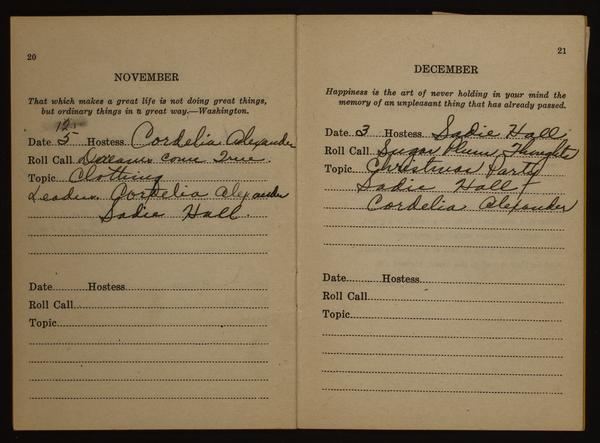 20
NOVEMBER
That which makes a great life is not doing great things,
but ordinary things in a great way.—Washington.
12
Date 5 Hostess Cordelia Alexander
Roll Call Dreams come True.
Topic Clothing
Leaders. Cordelia Alexander
Sadie Hall.
Date Hostess
Roll Call
Topic
21
DECEMBER
Happiness is the art of never holding in your mind the
memory of an unpleasant thing that has already passed.
Date 3 Hostess Sadie Hall
Roll Call Sugar Plum Thoughts
Topic Christmas Party
Sadie Hall +
Cordelia Alexander
Date Hostess
Roll Call
Topic